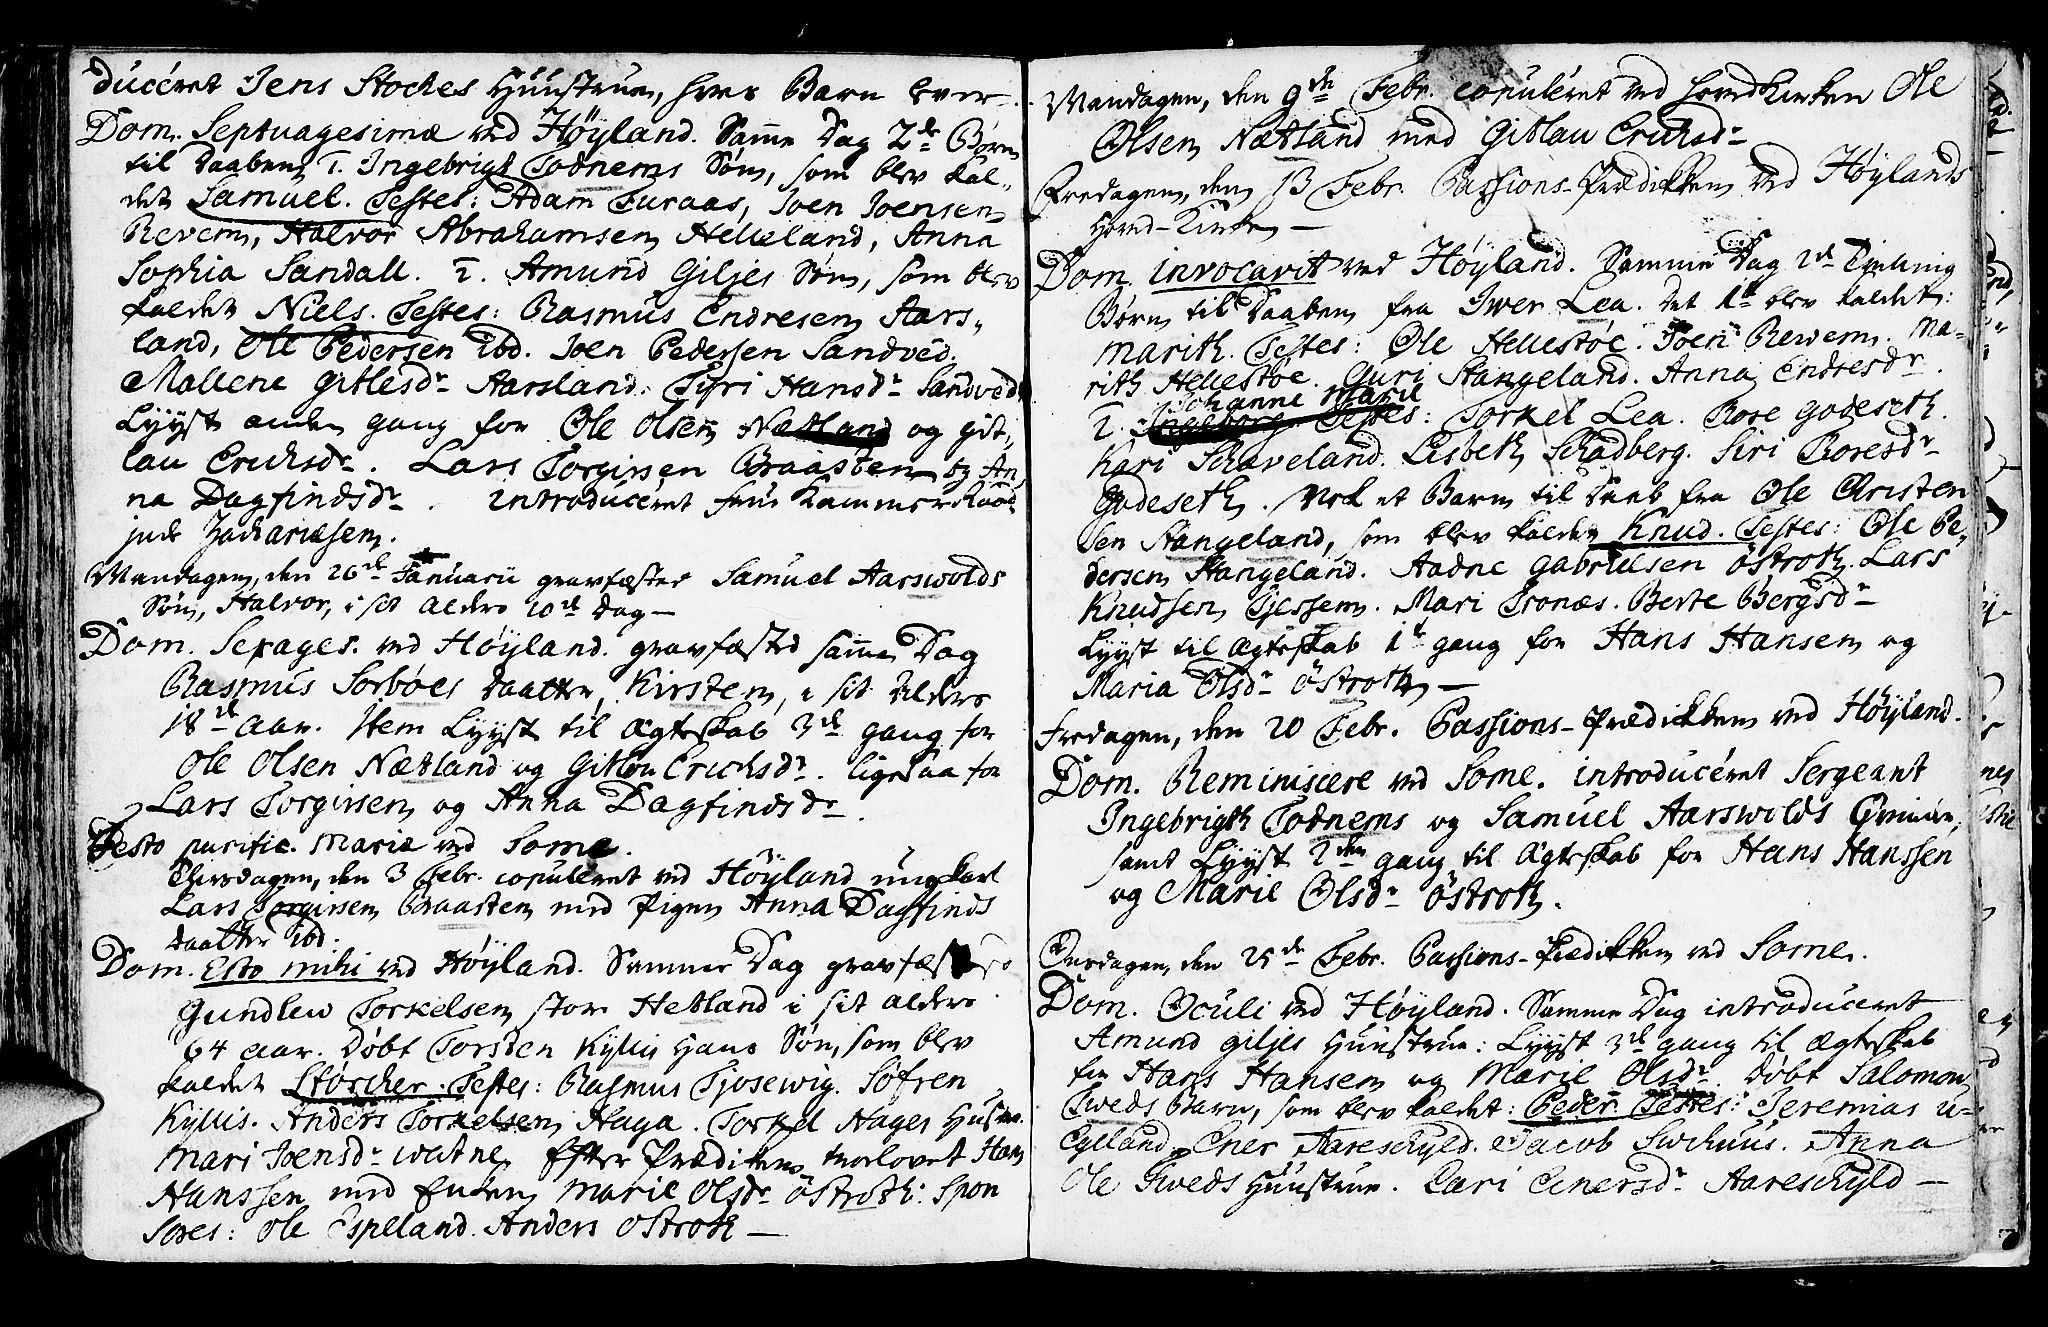 duceret Jens Stockes Huustrue, hvis Barn over-
Dom. Septuagesimæ ved Höyland. Samme Dag 2de Børn
til Daaben, 1. Ingebrigt Todnems Søn, som blev kal-
det Samuel. Testes: Adam Turaas, Joen Joensen
Revem, Halvor Abrahamsen Helleland, Anna
Sophia Sandall. 2. Amund Giljes Søn, som blev
kaldet Niels. Testes: Rasmus Endresen Aars-
land, Ole Pedersen ibd. Joen Pedersen Sandved.
Mallene Gitlesdr Aarsland. Tyri Hansdr Sandved
Lyyst anden gang for Ole Olsen Nætland og Git-
lau Erichsdr. Lars Torgirsen Braasten og An-
na Dagfindsdr. introduceret Frue Kammer Raad
inde Zachariæsen.
Mandagen, den 26de Januarii gravfæstes Samuel Aarswolds
Søn, Halvor, i sit Alders 10de Dag —
Dom. Sexages. ved Höyland. gravfæsted samme Dag
Rasmus Sorböes Daatter, Kirsten, i sit Alders
18de Aar. Item Lyyst til Ægteskab 3de gang for
Ole Olsen Nætland og Gitlou Erichsdr. ligesaa for
Lars Torgirsen og Anna Dagfindsdr.
Festo purific. Mariæ ved Some.
Tiirsdagen, den 3 Febr. copuleret ved Höyland ungkarl
Lars Torgirsen Braasten med Pigen Anna Dagfinds
daatter ibd.
Dom. Esto mihi ved Höyland. Samme Dag gravfæstes
Gundleu Torkelsen store Hetland i sit Alders
64 Aar. Döbt Torsten Kyllis Hans Søn, som blev
kaldet Störcher. Testes: Rasmus Tjosewig. Söfren
Kyllis. Anders Torkelsen Haga. Torkel Hages Hustru.
Mari Joensdr Watne. Efter Prædiken trolovet Hans
Hanssen med Enken Marie Olsdr Östroth. Spon
sores: Ole Espeland. Anders Ostroth —
Mandagen, den 9de Febr. copuleret ved Hovedkirken Ole
Olsen Nætland med Gitlau Erichsdr
Fredagen, den 13 Febr. Passions-Prædikken ved Höylands
Hoved-Kirke —
Dom. invocavit ved Höyland. Samme Dag 2de Tvilling
Børn til Daaben fra Iwer Lea. det 1te blev kaldet:
Marith. Testes: Ole Hellestöe. Joen Rewem. Ma-
rith Hellestöe. Guri Stangeland. Anna Endresdr.
Johanne Marie
2. Testes: Torkel Lea. Rose Godeseth.
Kari Schaveland. Lisbeth Schadberg. Siri Roresdr
Godeseth. Nok et Barn til Daab fra Ole Christen
sen Stangeland, som blev kaldet Knud. Testes: Ole Pe-
dersen Stangeland. Aadne Gabrielsen Östroth. Lars
Knudsen Tjessem. Mari Tronæs. Berte Bergsdr
Lyyst til Ægteskab 1te gang for Hans Hansen og
Maria Olsdr Östroth —
Fredagen, den 20 Febr. Passions-Prædikken ved Höyland.
Dom. Reminiscere ved Some. introduceret Sergeant
Ingebrigth Todnems og Samuel Aarswolds Qvinder,
samt Lyyst 2den gang til Ægteskab for Hans Hanssen
og Marie Olsdr Östroth.
Onsdagen, den 25de Febr. Passions-Prædikken ved Some.
Dom. Oculi ved Höyland. Samme Dag introduceret
Amund Giljes Huustrue: Lyyst 3de gang til Ægteskab
for Hans Hansen og Marie Olsdr. Döbt Salomon
Tweds Barn, som blev kaldet: Peder. Testes: Jeremias U-
Egeland. Ener Aareschyld. Jacob Awchuus. Anna
Ole Tweds Huustrue. Kari Enersdr Aareschyld —